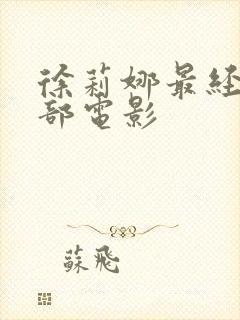 徐莉娜最经
部電影
蘇飛